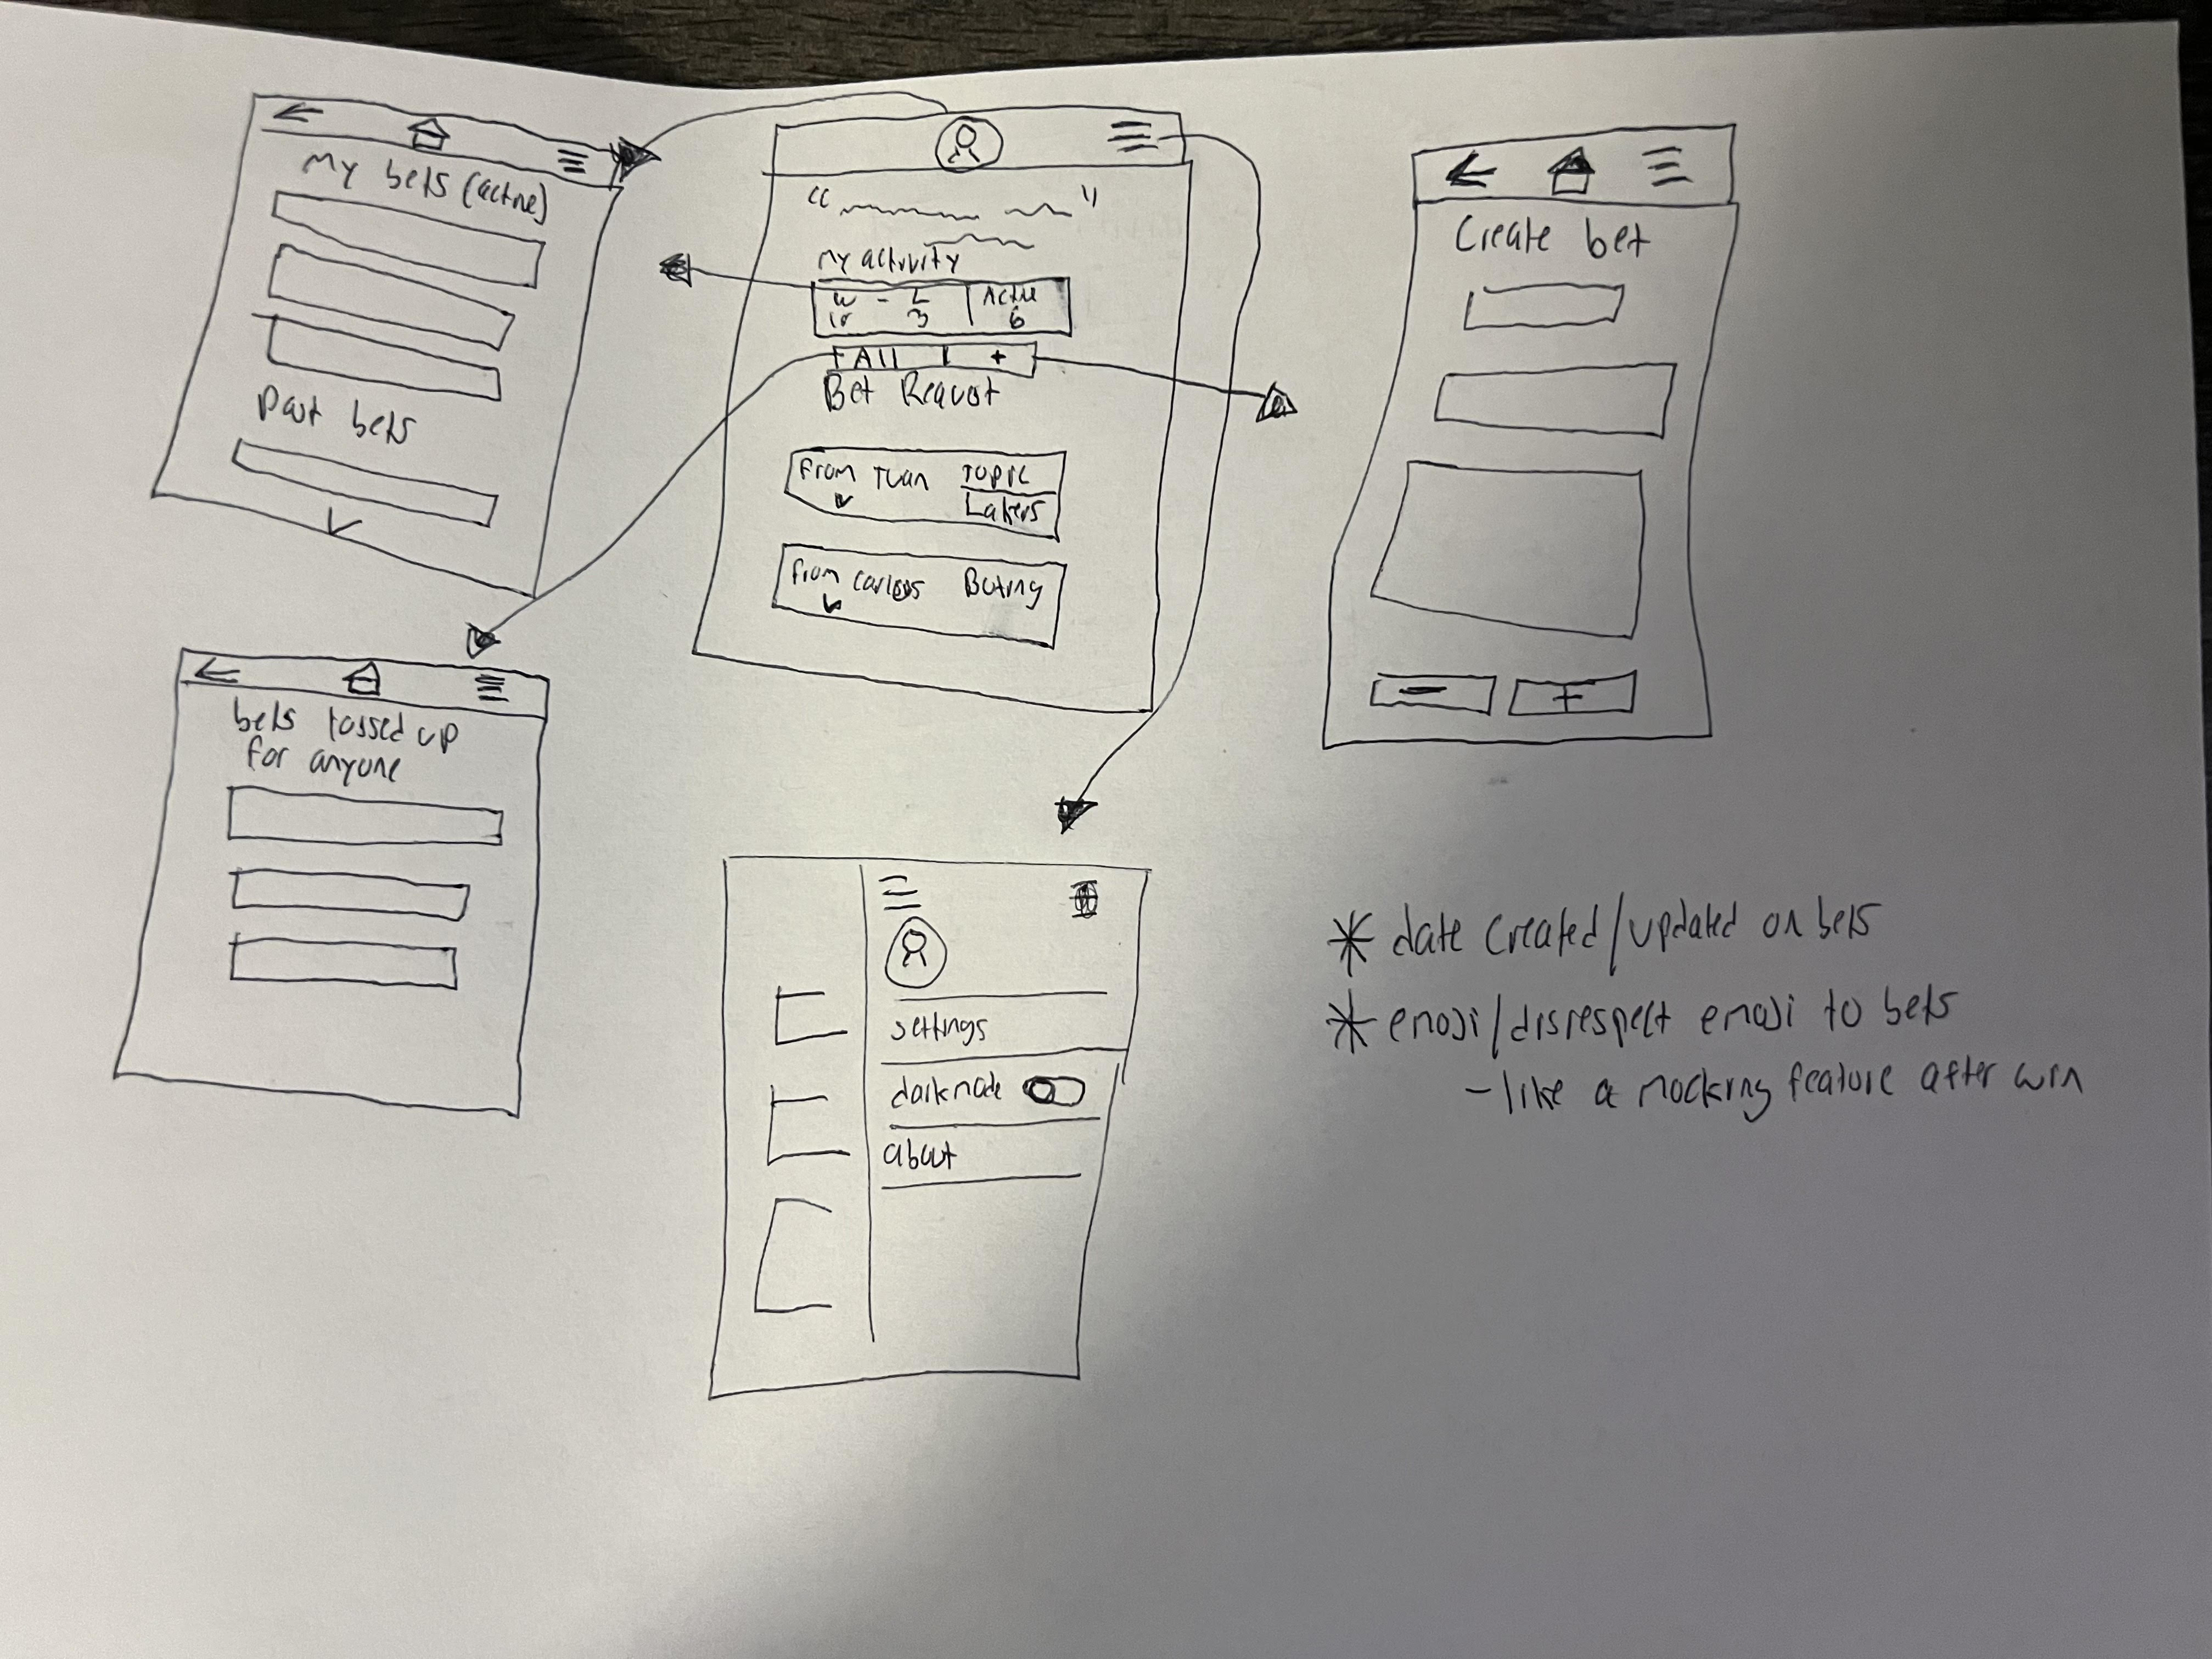 My bets (active)
Past bets
"
"
My activity
W - L
10 3
Active
6
All | +
Bet Request
From Tuan
Topic
Lakers
From Carlos
Boxing
Create bet
bets tossed up
for anyone
settings
darkmode
about
* date created/updated on bets
* emoji/disrespect emoji to bets
- like a mocking feature after win